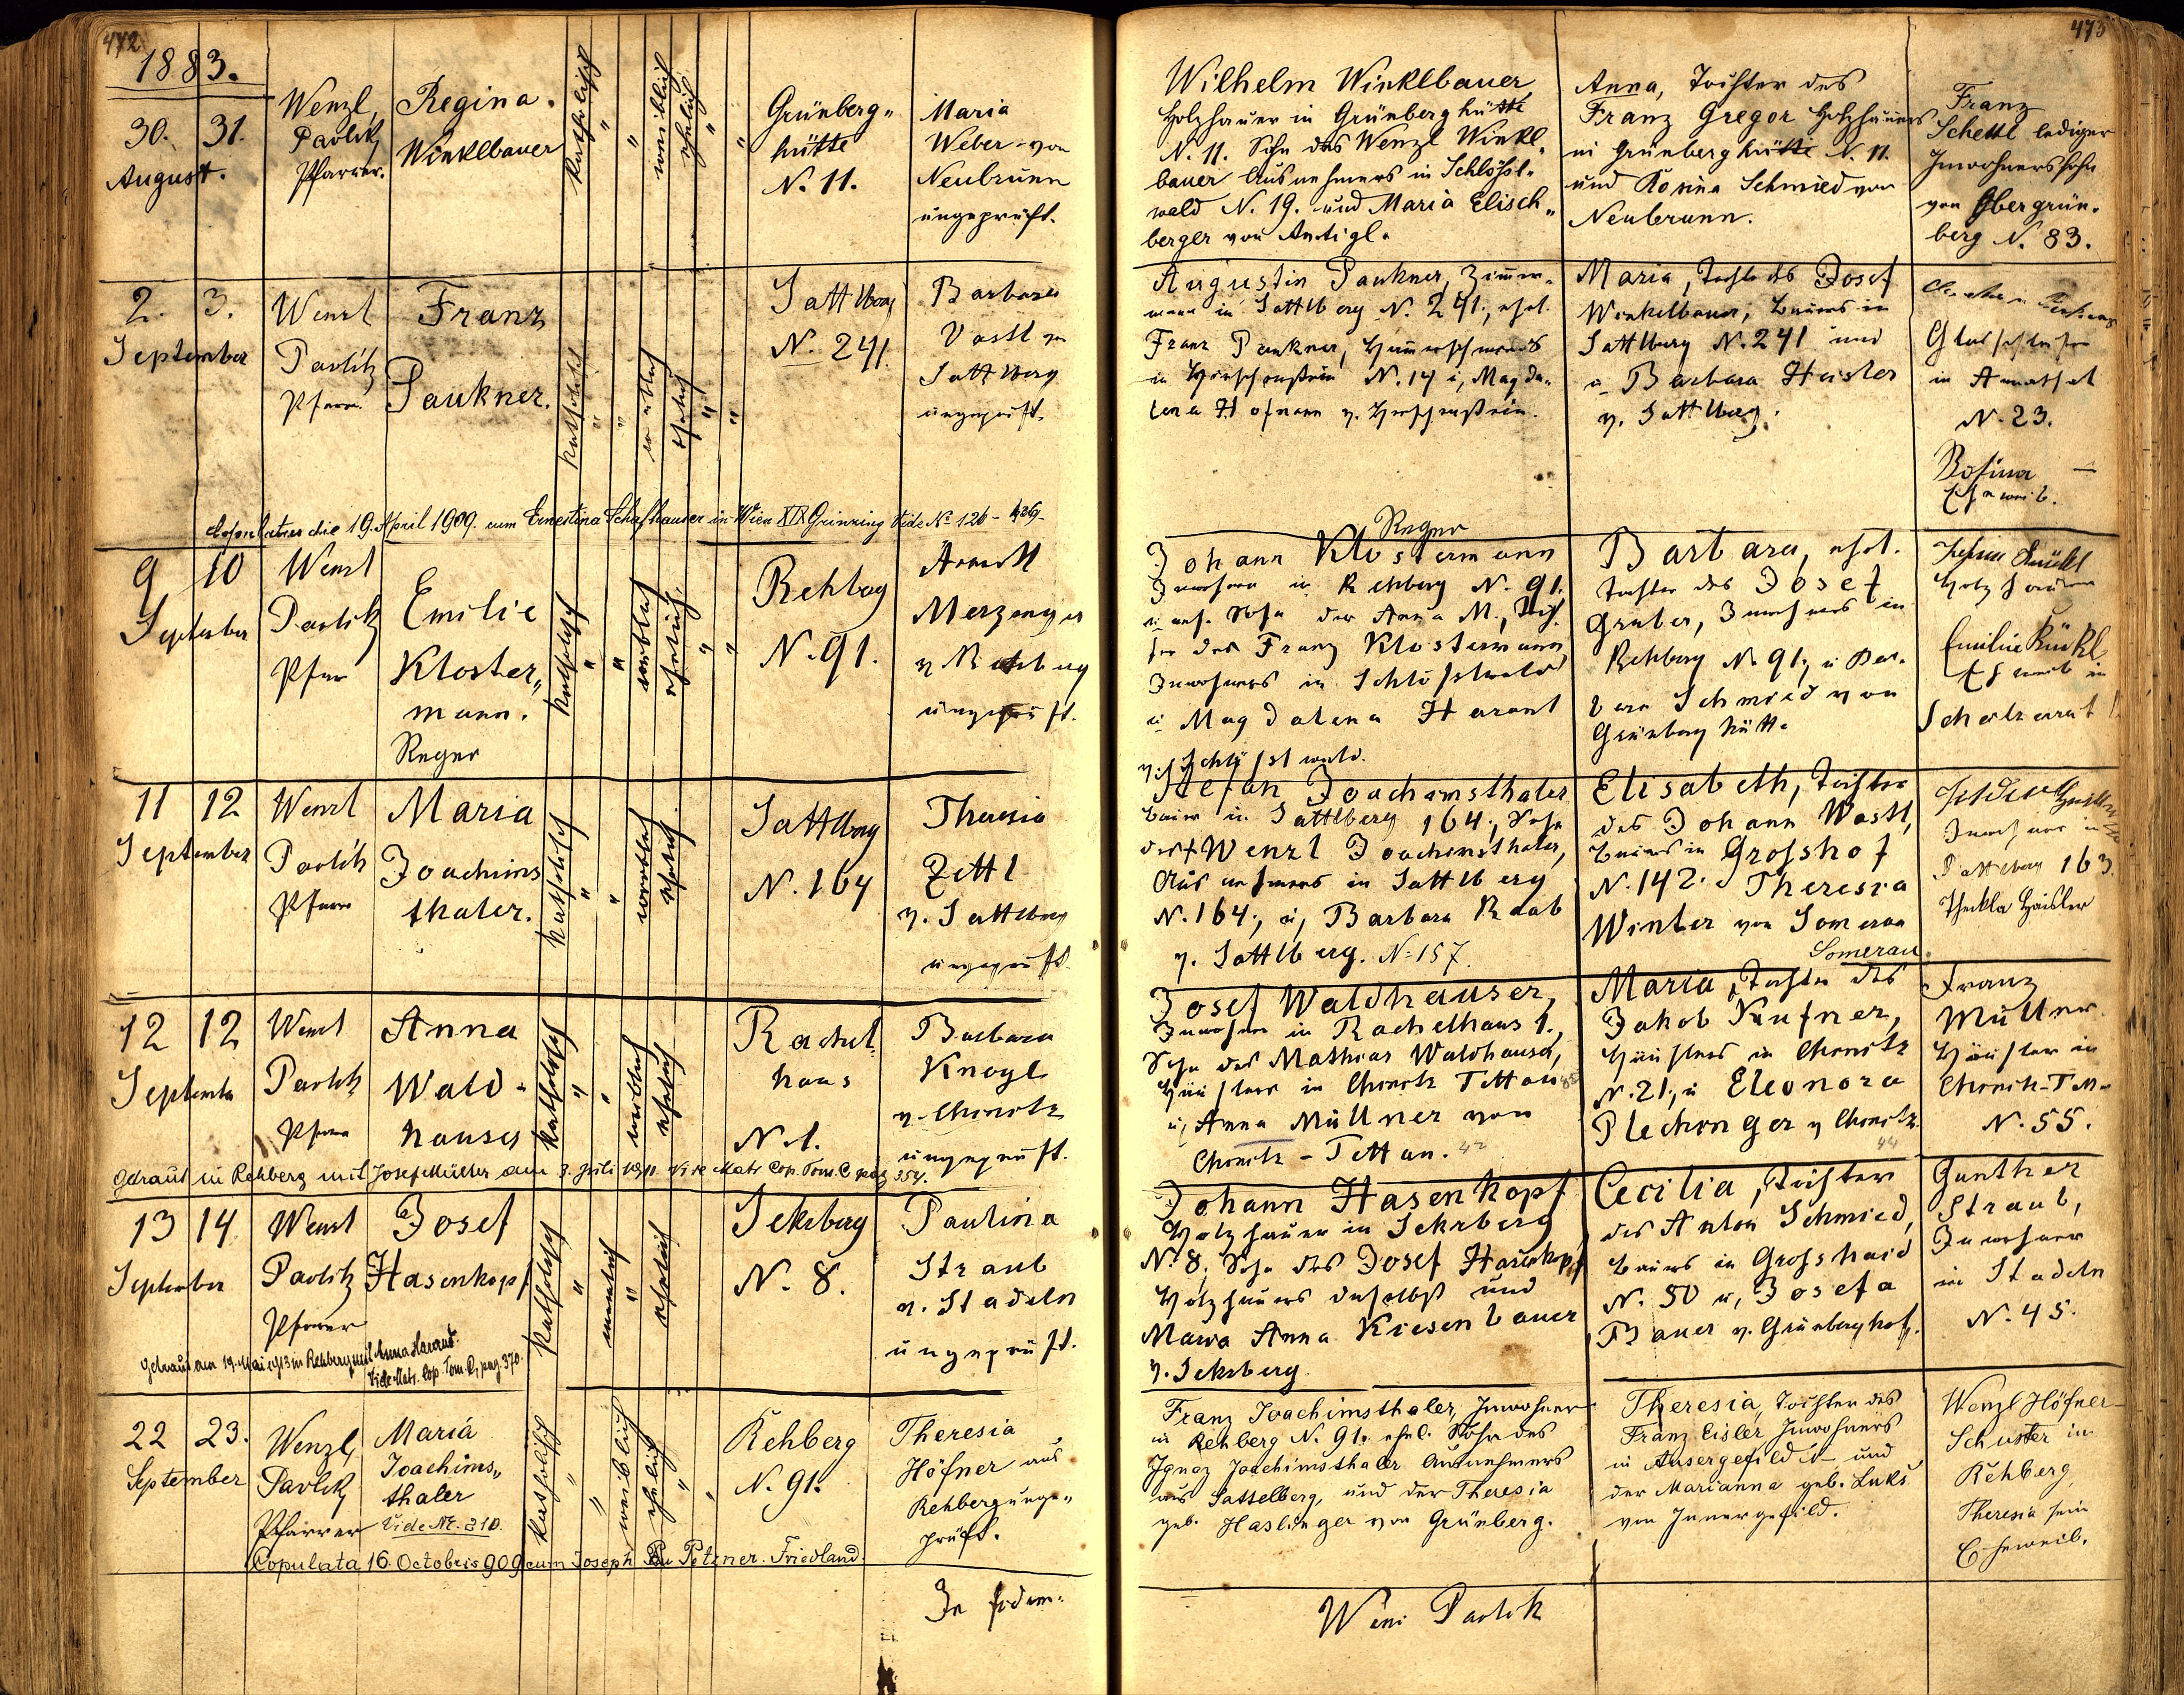 472
1883.
30. 31.
August.
Wenzl
Pavlik
Pfarrer.
Regina.
Winklbauer
katholisch
"
"
weiblich
ehelich
"
"
Grünberg„
hütte
N. 11.
Maria
Weber von
Neubrunn
ungeprüft.
2. 3.
September
Wenzl
Pavlik
Pfarr.
Franz
Paukner.
katholisch
"
"
ehelich
"
"
Sattlberg
N. 241.
Barbara
Vastl
Sattlberg
ungeprüft.
die 19. April 1909. cum Ernestina Schafhauser in Wien XIX Grinzing Vide No 126 -
9 10
September
Wenzl
Pavlik
Pfarr
Emilie
Kloster„
mann.
Reger
katholisch
"
"
weiblich
ehelich.
"
"
Rehberg
N. 91.
Merzenger
v Rehberg
ungeprüft.
11 12
September
Wenzl
Pavlik
Pfarrer
Maria
Joachims
thaler.
katholisch
"
"
weiblich
ehelich.
Sattlberg
N. 164
Theresia
Zettl
v. Sattlberg
ungeprüft.
12 12
September
Wenzl
Pavlik
Pfarrer
Anna
Wald-
hauser
katholisch
"
"
weiblich
ehelich
Rachel
haus
N. 1.
Barbara
Knogl
v. Chinitz
ungeprüft.
Getraut in Rehberg mit Josef Müller am 3. Juli Vide Matr. Cop. Tom. C pag 354.
13 14
September
Wenzl
Pavlik
Pfarrer
Josef
Hasenkopf
katholisch
"
männlich
"
ehelich
Sekrberg
N. 8.
Paulina
Straub
v. Stadeln
ungeprüft.
Getraut am 19. Mai 1913 in Rehberg mit Anna Harant.
Vide Matr. Cop. Tom. C, pag. 370.
22 23.
September
Wenzl
Pavlik
Pfarrer
Maria
Joachims„
thaler
Vide Nr. 210.
katholisch
"
"
weiblich
ehelich
"
"
Rehberg
N. 91.
Theresia
Höfner aus
Rehberg unge„
prüft.
Copulata 16. Octobris 909 cum Joseph Petzner. Friedland.
In fidem.
473
Wilhelm Winklbauer
Holzhauer in Grünberghütte
N. 11. Sohn des Wenzl Winkl„
bauer Ausnehmers in Schlößl„
wald N. 19. und Maria Elisch„
berger von Antigl.
Anna, Tochter des
Franz Gregor Holzhauers
in Grünberghütte N. 11.
und Rosina Schmied von
Neubrunn.
Franz
Schettl lediger
Inwohnerssohn
von Obergrün„
berg N. 83.
Augustin Paukner, Zimmer„
mann in Sattlberg N. 241., ehel.
Franz Paukner, Hammerschmieds
in Hirschenstein N. 14 u, Magda„
lena Hofmann v. Hirschenstein.
Maria, Tochter des Josef
Winkelbauer, Bauers in
Sattlberg N. 241 und
Barbara Heisler
v. Sattlberg.
Glasschleifer
in Annathal
N. 23.
Rosina —
Eheweib.
Reger
Johann Klostermann
Inwohner in Rehberg N. 91.
Sohn der Anna M., Toch„
ter des Franz Klostermann
Inwohners in Schlößlwald
u Magdalena Harant
v. Schlößlwald.
Barbara, ehel.
Tochter des Josef
Gruber, Inwohners in
Rehberg No 91; u Bar„
bara Schmied von
Grünberghütte
Holzhauer
Emilie Kückl
Eheweib in
Stefan Joachimsthaler
Bauer in Sattlberg 164., Sohn
des † Wenzl Joachimsthaler,
Ausnehmers in Sattlberg
N. 164; u, Barbara Raab
v. Sattlberg. N. 157.
Elisabeth, Tochter
des Johann Wastl,
Bauers in Großhof
N. 142. Theresia
Winter von Somerau
Somerau
Inwohner in
Sattelberg 163.
Thekla Haisler
Josef Waldhauser,
Inwohner in Rachelhaus 1.,
Sohn des Mathias Waldhauser,
Häuslers in Chinitz Tettau
u, Anna Müllner von
Chinitz - Tettau.
Maria, Tochter des
Jakob Kufner,
Häuslers in Chinitz
N. 21; u Eleonora
Plechinger v Chinitz.
44
Franz
Müllner
Häusler in
Chinitz-Tett-
N. 55.
Johann Hasenkopf
Holzhauer in Sekrberg
No 8, Sohn des Josef Hasenkopf
Holzhauers daselbst und
Maria Anna Kiesenbauer
v. Sekrberg
Cecilia, Tochter
des Anton Schmied,
Bauers in Großhaid
N. 50 u, Josefa
Bauer v. Grünberghof.
Gunther
Straub,
Inwohner
in Stadeln
N. 45.
Franz Joachimsthaler, Inwohner
in Rehberg N. 91. ehel. Sohn des
Ignaz Joachimsthaler Ausnehmers
aus Sattelberg, und der Theresia
geb. Haslinger von Grünberg.
Theresia, Tochter des
Franz Eisler Inwohners
in Ausergefild N— und
der Marianna geb. Luks
von Innergefild.
Wenzl Höfner
Schuster in
Rehberg
Theresia sein
Eheweib.
Wenz Pavlik